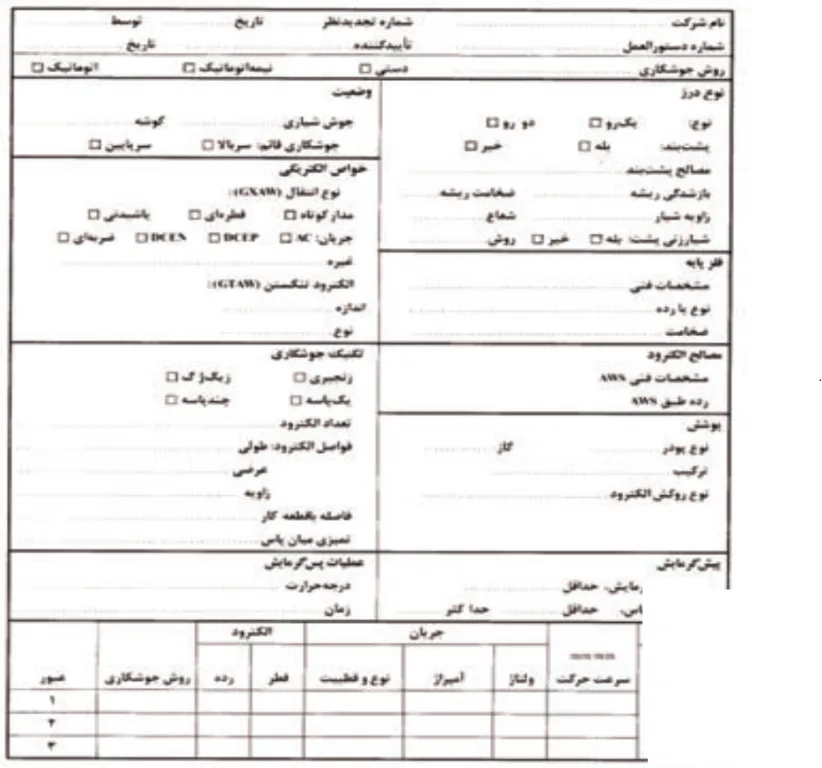 نام شرکت شماره تجدیدنظر تاریخ توسط
شماره دستورالعمل تأییدکننده تاریخ
روش جوشکاری دستی □ نیمه‌اتوماتیک □ اتوماتیک □
نوع درز
نوع: یک‌رو □ دو رو □
پشت‌بند: بله □ خیر □
مصالح پشت‌بند
بازشدگی ریشه ضخامت ریشه
زاویه شیار شعاع
شیارزنی پشت: بله □ خیر □ روش
فلز پایه
مشخصات فنی
نوع یا رده
ضخامت
مصالح الکترود
مشخصات فنی AWS
رده طبق AWS
پوشش
نوع پودر گاز
ترکیب
نوع روکش الکترود
پیش‌گرمایش
رمایش، حداقل
اس، حداقل حداکثر
وضعیت
جوش شیاری گوشه
جوشکاری قائم: سربالا □ سرپایین □
خواص الکتریکی
نوع انتقال (GXAW):
مدار کوتاه □ قطره‌ای □ پاشیدنی □
جریان: AC □ DCEP □ DCEN □ ضربه‌ای □
غیره
الکترود تنگستن (GTAW):
اندازه
نوع
تکنیک جوشکاری
زنجیری □ زیگزگ □
یک‌پاسه □ چندپاسه □
تعداد الکترود
فواصل الکترود: طولی
عرضی
زاویه
فاصله باقطعه کار
تمیزی میان پاس
عملیات پس‌گرمایش
درجه‌حرارت
زمان
جریان الکترود
سرعت حرکت ولتاژ آمپراژ نوع و قطبیت قطر رده روش جوشکاری عبور
۱
۲
۳